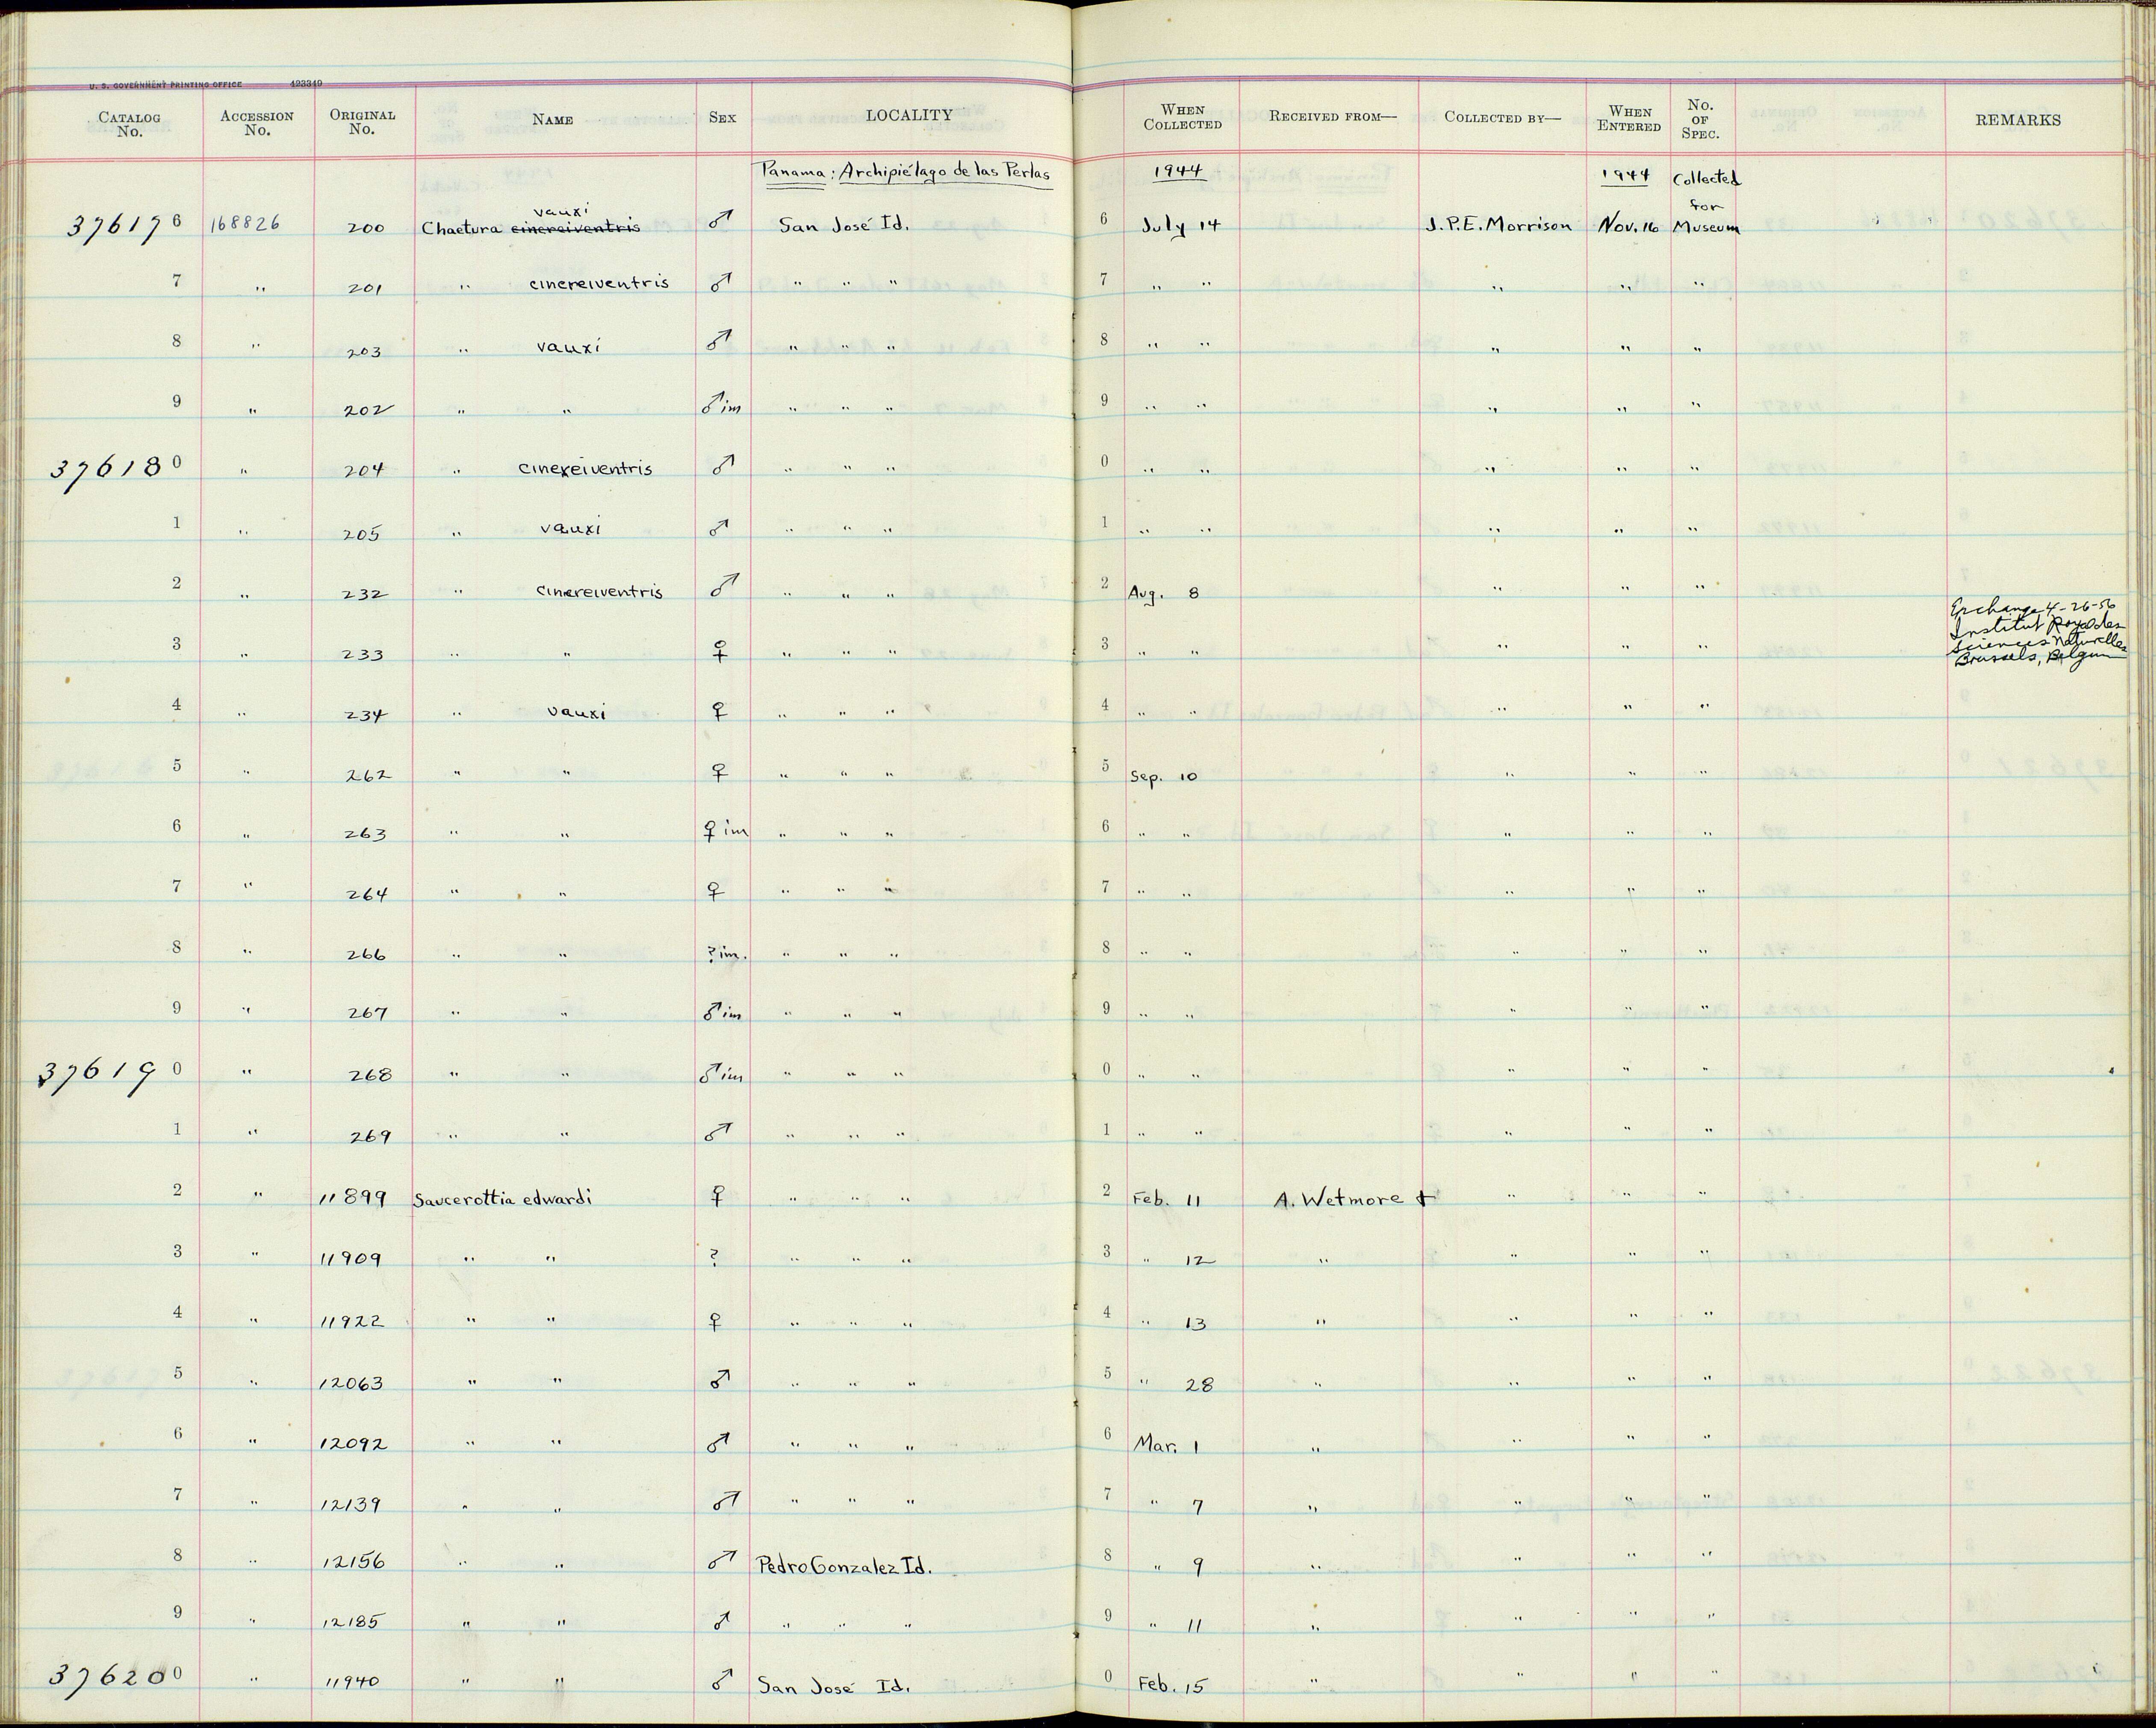 U. S. GOVERNMENT PRINTING OFFICE 423349
CATALOG No. ACCESSION No. ORIGINAL No. NAME SEX LOCALITY WHEN COLLECTED RECEIVED FROM— COLLECTED BY— WHEN ENTERED No. OF SPEC. REMARKS
Panama: Archipiélago de las Perlas 1944 1944 Collected
vauxi for
376176 168826 200 Chaetura cinereiventris ♂ San José Id. 6 July 14 J.P.E. Morrison Nov. 16 Museum
7 " 201 " cinereiventris ♂ " " " 7 " " " " "
8 " 203 " vauxi ♂ " " " 8 " " " " "
9 " 202 " " ♂ im " " " 9 " " " " "
376180 " 204 " cinereiventris ♂ " " " 0 " " " " "
1 " 205 " vauxi ♂ " " " 1 " " " " "
2 " 232 " cinereiventris ♂ " " " 2 Aug. 8 " " "
Exchange 4-26-56
Institut Royal des
3 " 233 " " ♀ " " " 3 " " " " " Sciences Naturelles
Brussels, Belgium
4 " 234 " vauxi ♀ " " " 4 " " " " "
5 " 262 " " ♀ " " " 5 Sep. 10 " " "
6 " 263 " " ♀ im " " " 6 " " " " "
7 " 264 " " ♀ " " " 7 " " " " "
8 " 266 " " ? im. " " " 8 " " " " "
9 " 267 " " ♂ im " " " 9 " " " " "
376190 " 268 " " ♂ im " " " 0 " " " " "
1 " 269 " " ♂ " " " 1 " " " " "
2 " 11899 Saucerottia edwardi ♀ " " " 2 Feb. 11 A. Wetmore + " " "
3 " 11909 " " ? " " " 3 " 12 " " " "
4 " 11922 " " ♀ " " " 4 " 13 " " " "
5 " 12063 " " ♂ " " " 5 " 28 " " " "
6 " 12092 " " ♂ " " " 6 Mar. 1 " " " "
7 " 12139 " " ♂ " " " 7 " 7 " " " "
8 " 12156 " " ♂ Pedro Gonzalez Id. 8 " 9 " " " "
9 " 12185 " " ♂ " " " 9 " 11 " " " "
376200 " 11940 " " ♂ San José Id. 0 Feb. 15 " " " "